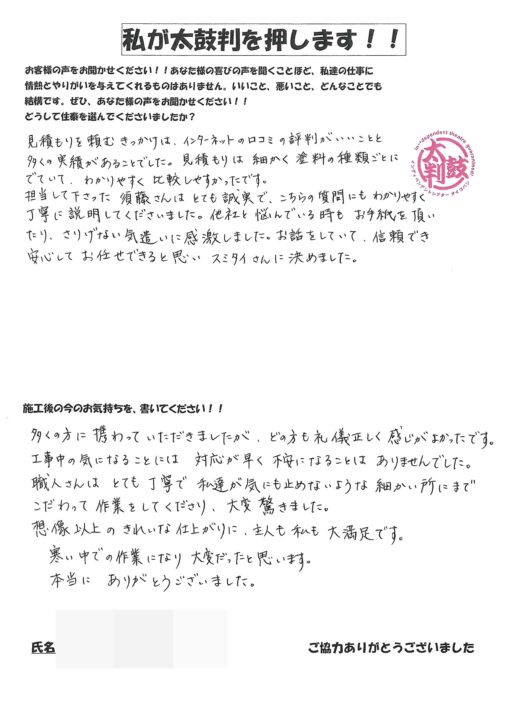 私が太鼓判を押します！！
お客様の声をお聞かせください！！あなた様の喜びの声を聞くことほど、私達の仕事に
情熱とやりがいを与えてくれるものはありません。いいこと、悪いこと、どんなことでも
結構です。ぜひ、あなた様の声をお聞かせください！！
どうして住泰を選んでくださいましたか？
見積もりを頼むきっかけは、インターネットの口コミの評判がいいことと
多くの実績があることでした。見積もりは細かく塗料の種類ごとに
でていて、わかりやすく比較しやすかったです。
担当して下さった須藤さんはとても誠実で、こちらの質問にもわかりやすく
丁寧に説明してくださいました。他社と悩んでいる時もお手紙を頂い
たり、さりげない気遣いに感激しました。お話をしていて、信頼でき
安心してお任せできると思いスミタイさんに決めました。
太鼓判
施工後の今のお気持ちを、書いてください！！
多くの方に携わっていただきましたが、どの方も礼儀正しく感じがよかったです。
工事中の気になることには対応が早く不安になることはありませんでした。
職人さんはとても丁寧で私達が気にも止めないような細かい所にまで
こだわって作業をしてくださり、大変驚きました。
想像以上のきれいな仕上がりに、主人も私も大満足です。
寒い中での作業になり大変だったと思います。
本当にありがとうございました。
氏名
ご協力ありがとうございました